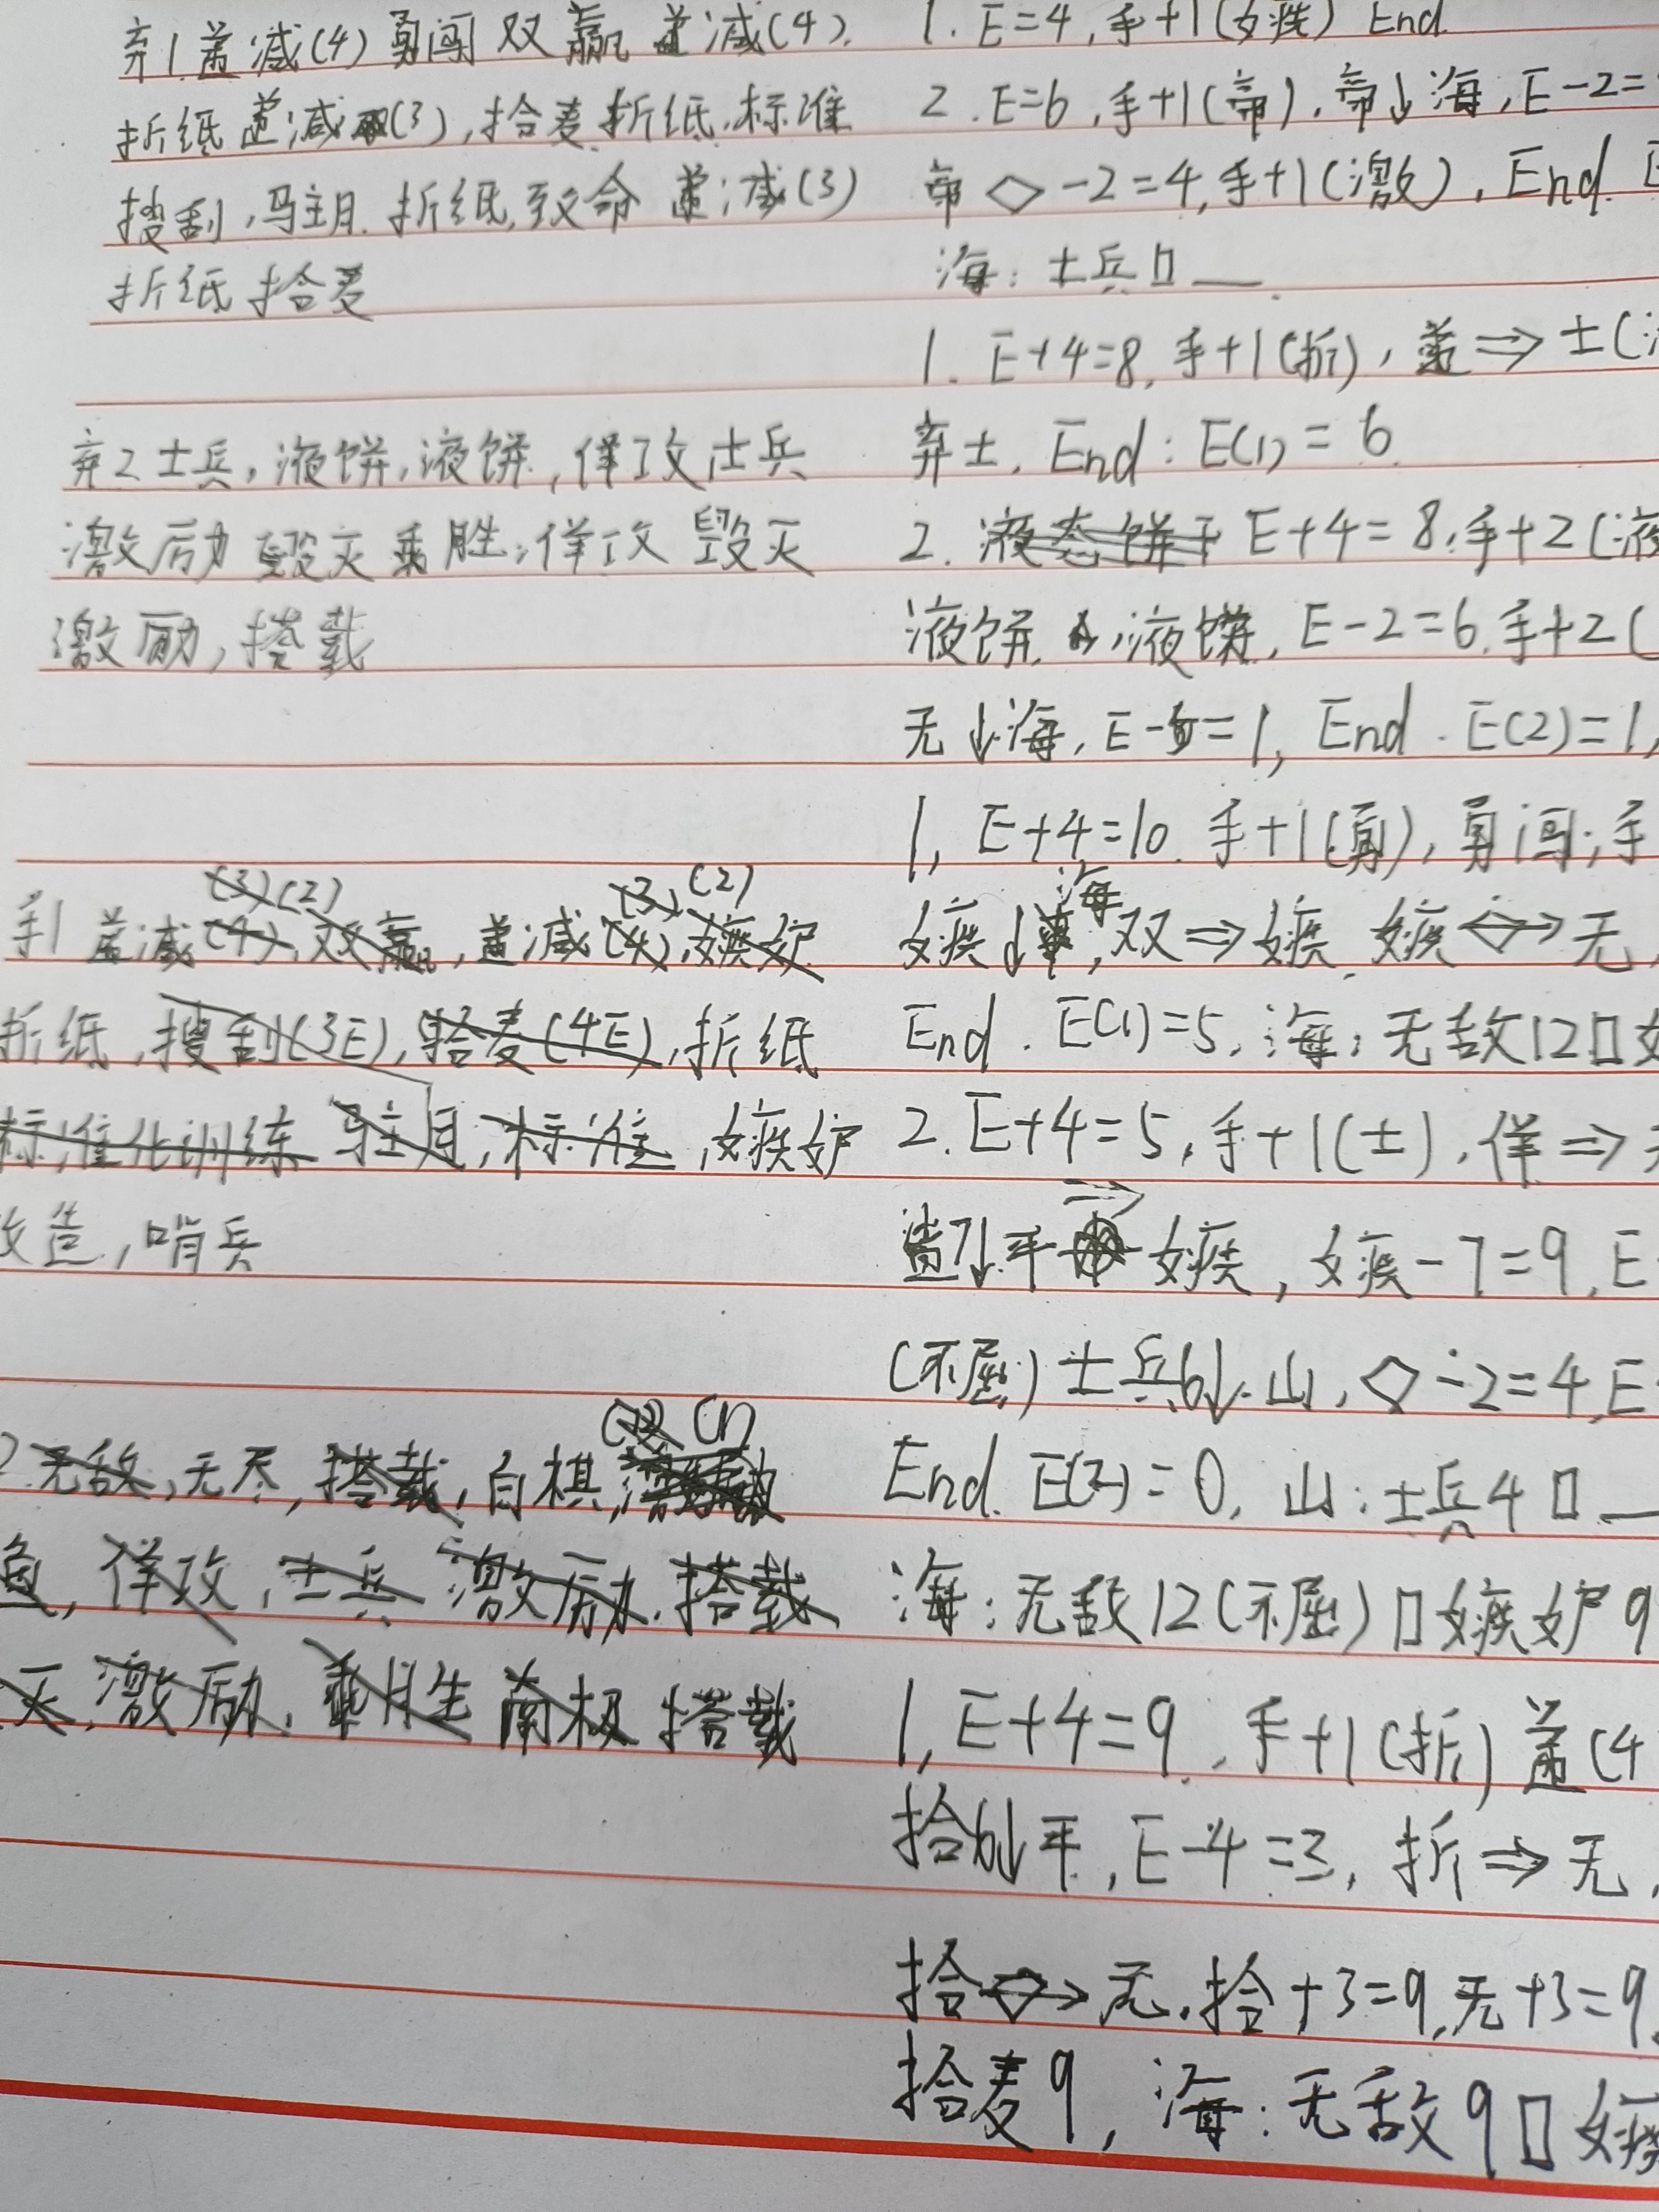 弃1.递减(4)勇闯 双赢 递减(4).
折纸 递减(3),拾麦.折纸.标准
搜刮,马主月.折纸,致命 递减(3)
折纸 拾麦
弃2 士兵,液饼,液饼,佯攻,士兵
激励 毁灭 乘胜,佯攻 毁灭
激励,搭载
(3)(2) (3)(2)
手1 递减(4),双赢,递减(4),嫉妒
折纸,搜刮(3E),拾麦(4E),折纸
标准化训练 马主月,标准,嫉妒
改造,哨兵
(1)
2无敌,无尽,搭载,白棋,激励
佯攻,士兵 激励.搭载
灭,激励,乘胜 南极 搭载
1. E=4,手+1(嫉) End.
2. E=6,手+1(帝).帝↓海,E-2=
帝◇-2=4,手+1(激),End.
海:士兵□__.
1. E+4=8,手+1(折),递⇒士(
弃士. End: E(1)=6.
2. 液态饼干 E+4=8.手+2(液
液饼.液饼,E-2=6.手+2(
无↓海,E-5=1, End. E(2)=1,
1, E+4=10.手+1(勇),勇闯;手
嫉↓海,双⇒嫉.嫉◇→无
End. E(1)=5,海:无敌12□
2. E+4=5,手+1(士),佯⇒
7↓平→嫉,嫉-7=9,E
(不屈)士兵6↓山,◇-2=4,E
End. E(2)=0,山:士兵4□__
海:无敌12(不屈)□嫉妒9
1, E+4=9.手+1(折)递(4
拾6↓平,E-4=3,折⇒无,
拾◇→无,拾+3=9,无+3=9
拾麦9,海:无敌9□嫉